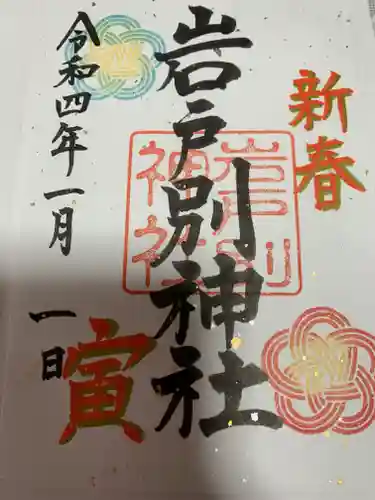 新春
岩戸別神社
岩戸別
神社
令和四年一月
一日
寅